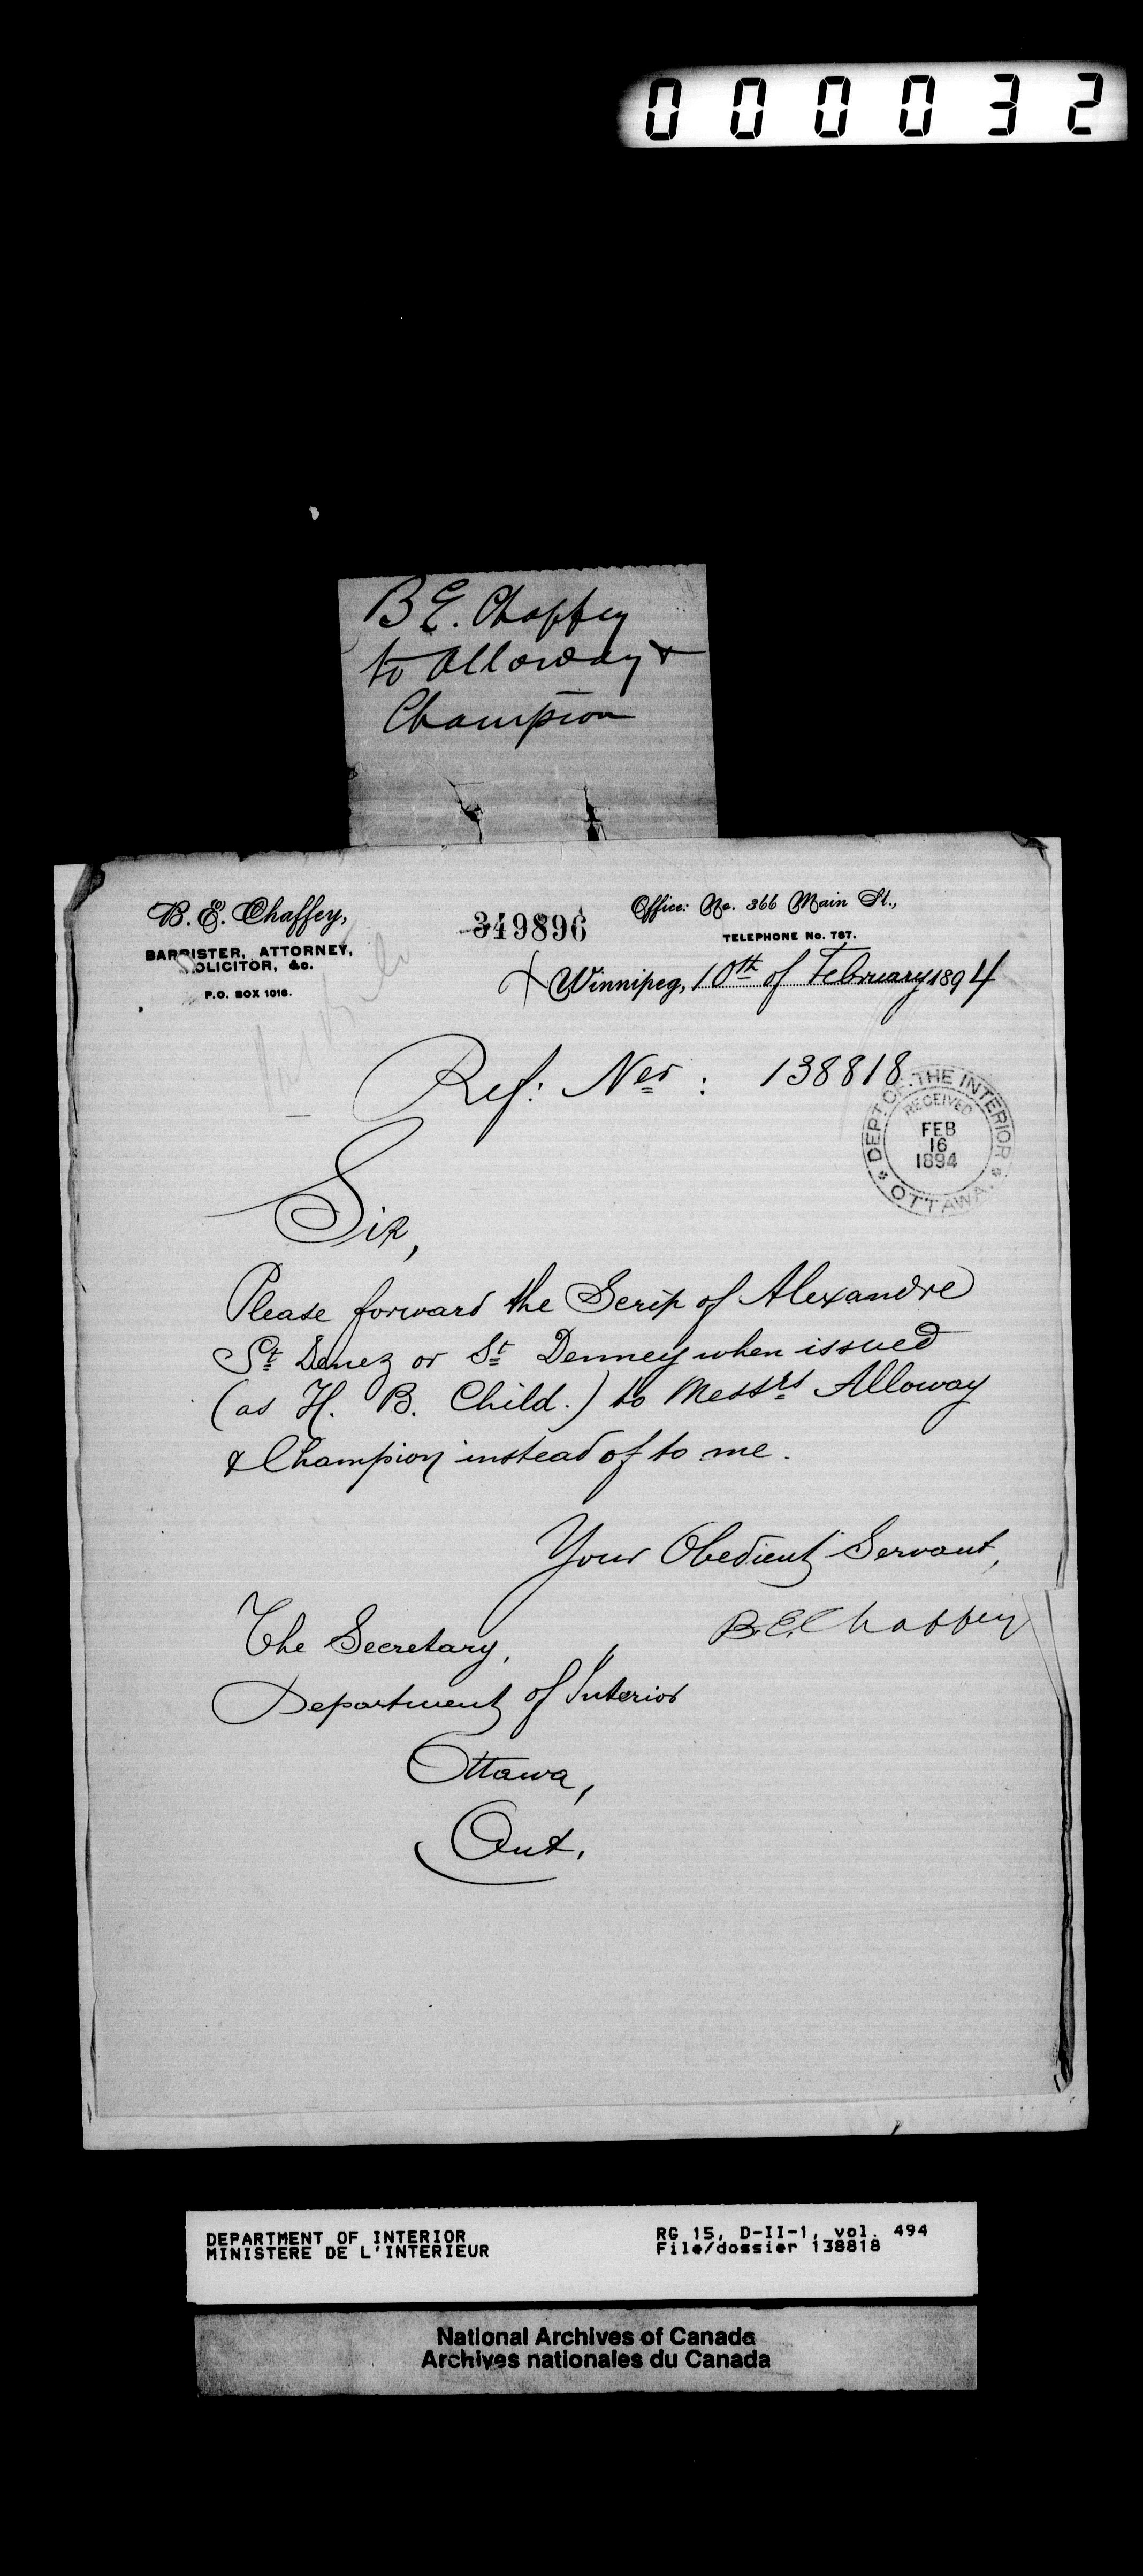 000032
B E. Chaffey
to Alloway &
Champion
B. E. Chaffey,
BARRISTER, ATTORNEY,
SOLICITOR, &c.
P.O. BOX 1016.
349896
Office: No. 366 Main St.,
TELEPHONE No. 767.
Winnipeg, 10th of February 1894
Ref: Nos : 138818
DEPT. OF THE INTERIOR
RECEIVED
FEB
16
1894
OTTAWA.
Sir,
Please forward the Scrip of Alexandre
St Denez or St Denney when issued
(as H. B. Child.) to Messrs Alloway
& Champion instead of to me.
Your Obedient Servant,
B.E.Chaffey
The Secretary,
Department of Interior
Ottawa,
Ont.
DEPARTMENT OF INTERIOR
MINISTERE DE L'INTERIEUR
RG 15, D-II-1, vol. 494
File/dossier 138818
National Archives of Canada
Archives nationales du Canada